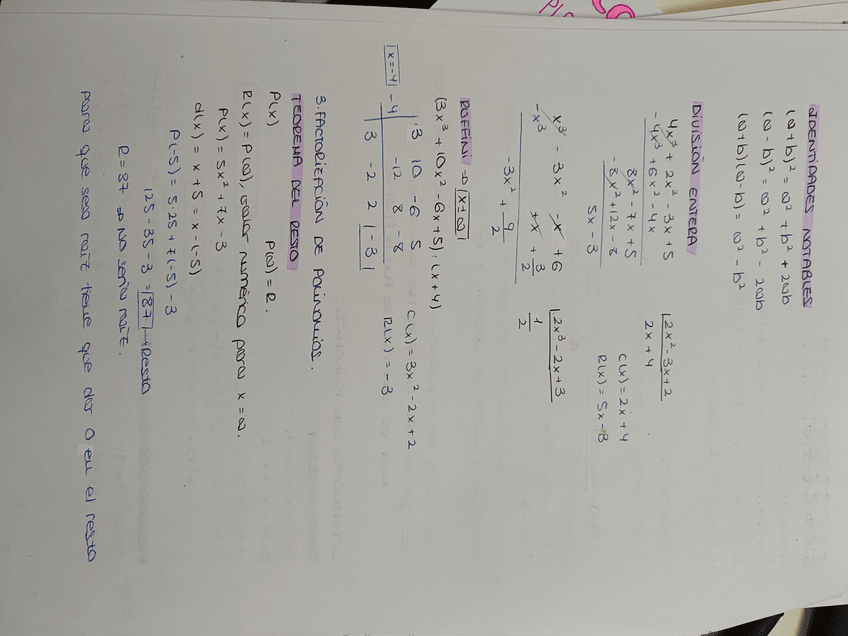 IDENTIDADES NOTABLES
(a+b)² = a² + b² + 2ab
(a-b)² = a² + b² - 2ab
(a+b)(a-b) = a² - b²
DIVISIÓN ENTERA
4x³ + 2x² - 3x + 5 |2x² - 3x + 2
-4x³ + 6x² - 4x 2x + 4
8x² - 7x + 5 C(x) = 2x + 4
-8x² + 12x - 8 R(x) = 5x - 3
5x - 3
x³ - 3x² - x + 6 |2x³ - 2x + 3
-x³ +x + 3/2 1/2
-3x² + 9/2
RUFFINI => |x±a|
(3x³ + 10x² - 6x + 5) : (x + 4)
3 10 -6 5 C(x) = 3x² - 2x + 2
|x=-4| -4 -12 8 -8 R(x) = -3
3 -2 2 |-3|
3. FACTORIZACIÓN DE POLINOMIOS.
TEOREMA DEL RESTO
P(x) P(a) = R.
R(x) = P(a), valor numérico para x = a.
P(x) = 5x² + 7x - 3
d(x) = x + 5 = x - (-5)
P(-5) = 5·25 + 7(-5) - 3
125 - 35 - 3 = |87| → Resto
R = 87 => No sería raíz.
para que sea raíz tiene que dar 0 en el resto